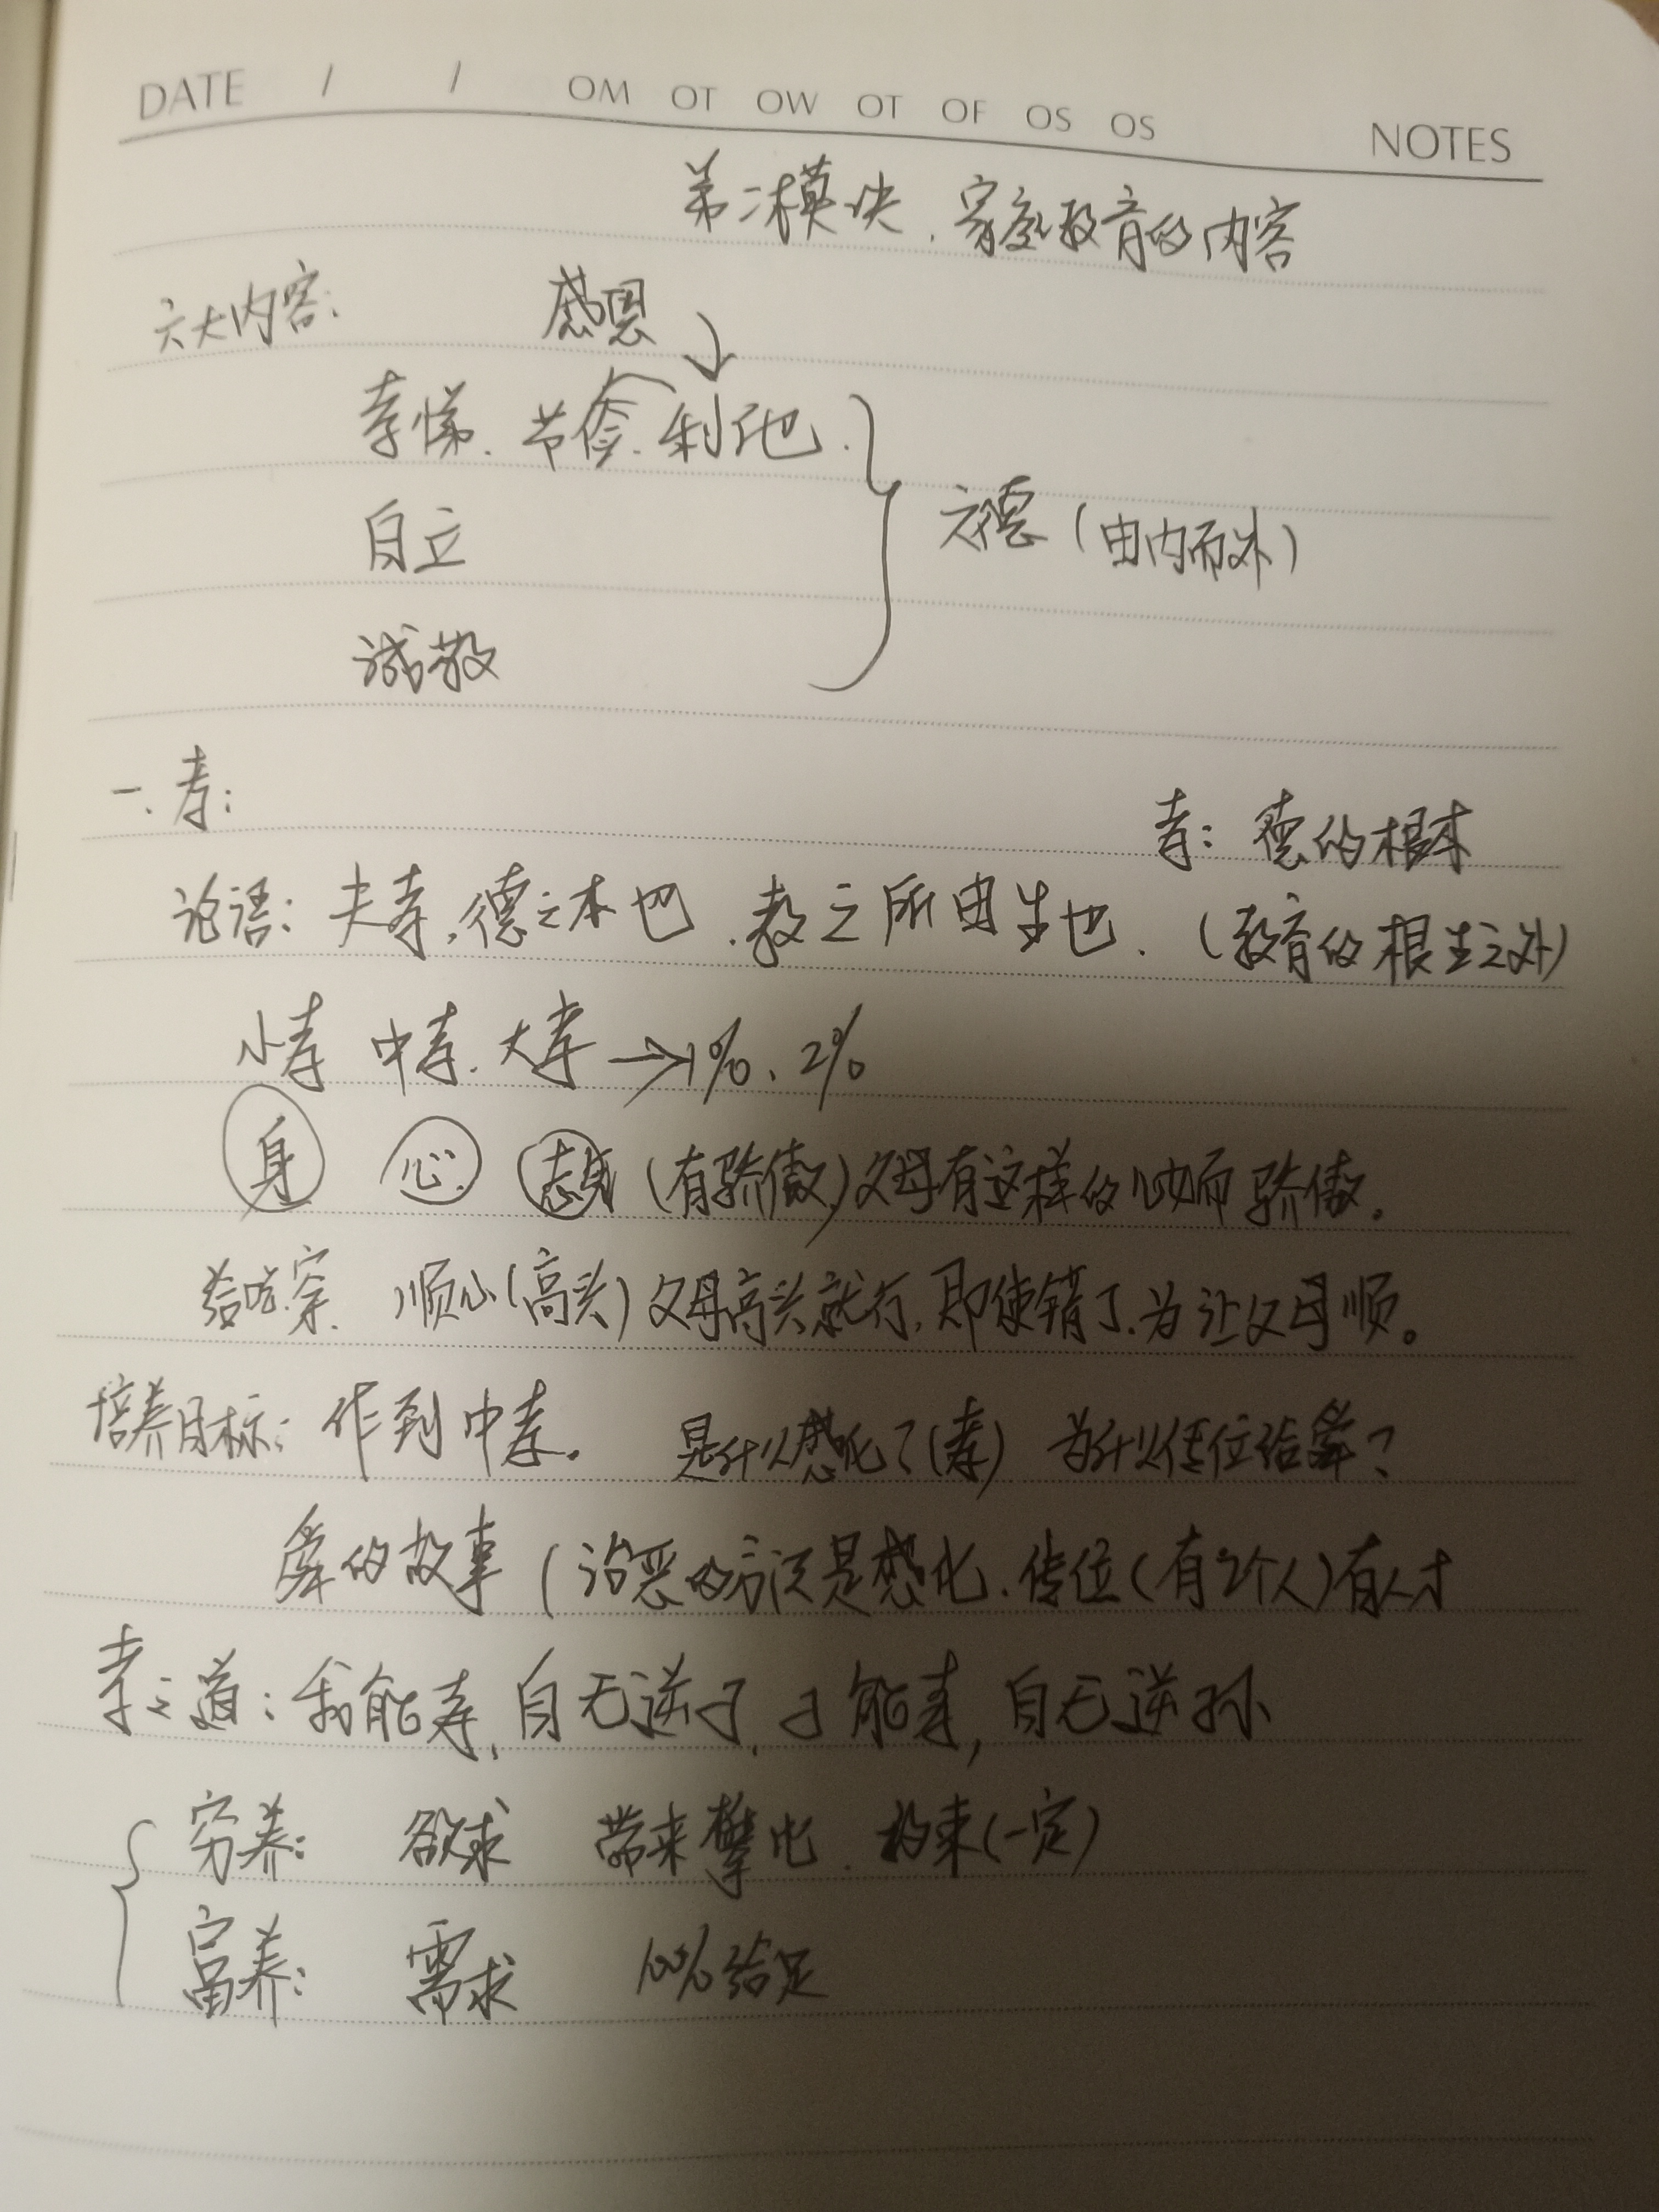 DATE / / OM OT OW OT OF OS OS NOTES
第二模块、家庭教育的内容
六大内容: 感恩
孝悌、节俭、利他.
自立 六德(由内而外)
诚敬
一、孝:
孝: 德的根本
论语: 夫孝,德之本也、教之所由生也.(教育的根生之外)
小孝 中孝、大孝→1%、2%
身 心 志 (有骄傲)父母有这样的儿女而骄傲。
给吃.穿. 顺心(高兴)父母高兴就行,即使错了.为让父母顺。
培养目标: 作到中孝。 是什么感化了(孝) 为什么传位给舜?
舜的故事(治恶的方法是感化.传位(有2个人)有人才
孝之道: 我能孝,自无逆子,子能孝,自无逆孙
穷养: 欲求 带来 约束(一定)
富养: 需求 100%给足